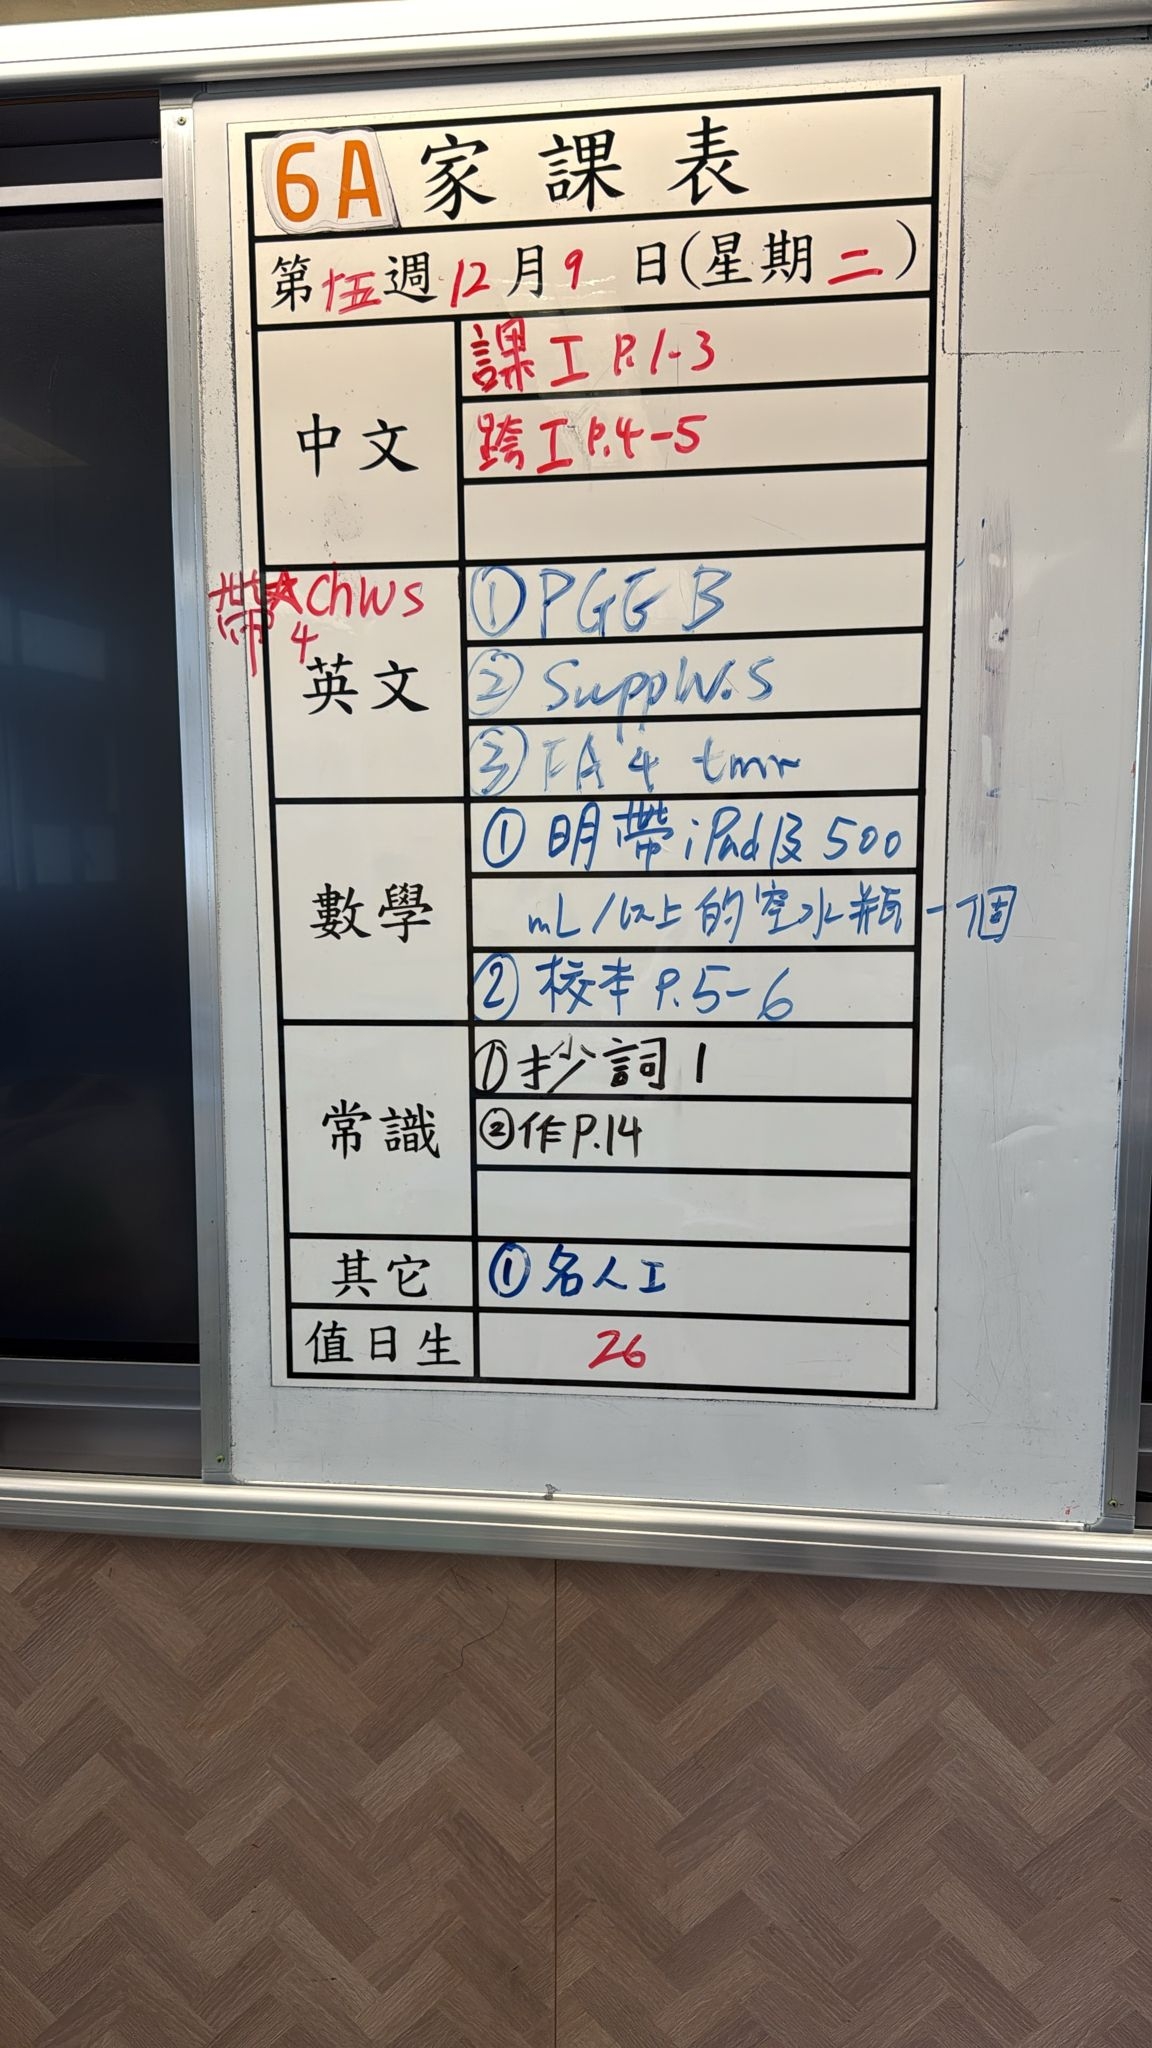 6A 家課表
第十五週12月9日(星期二)
中文
課工 P.1-3
跨工 P.4-5
帶★Chws
4
英文
① PGE B
② Supp W.S
③ FA 4 tmr
數學
① 明帶 iPad及 500
mL/以上的空水瓶一個
② 校本 P.5-6
常識
① 抄詞 1
② 作 P.14
其它
① 名人工
值日生
26